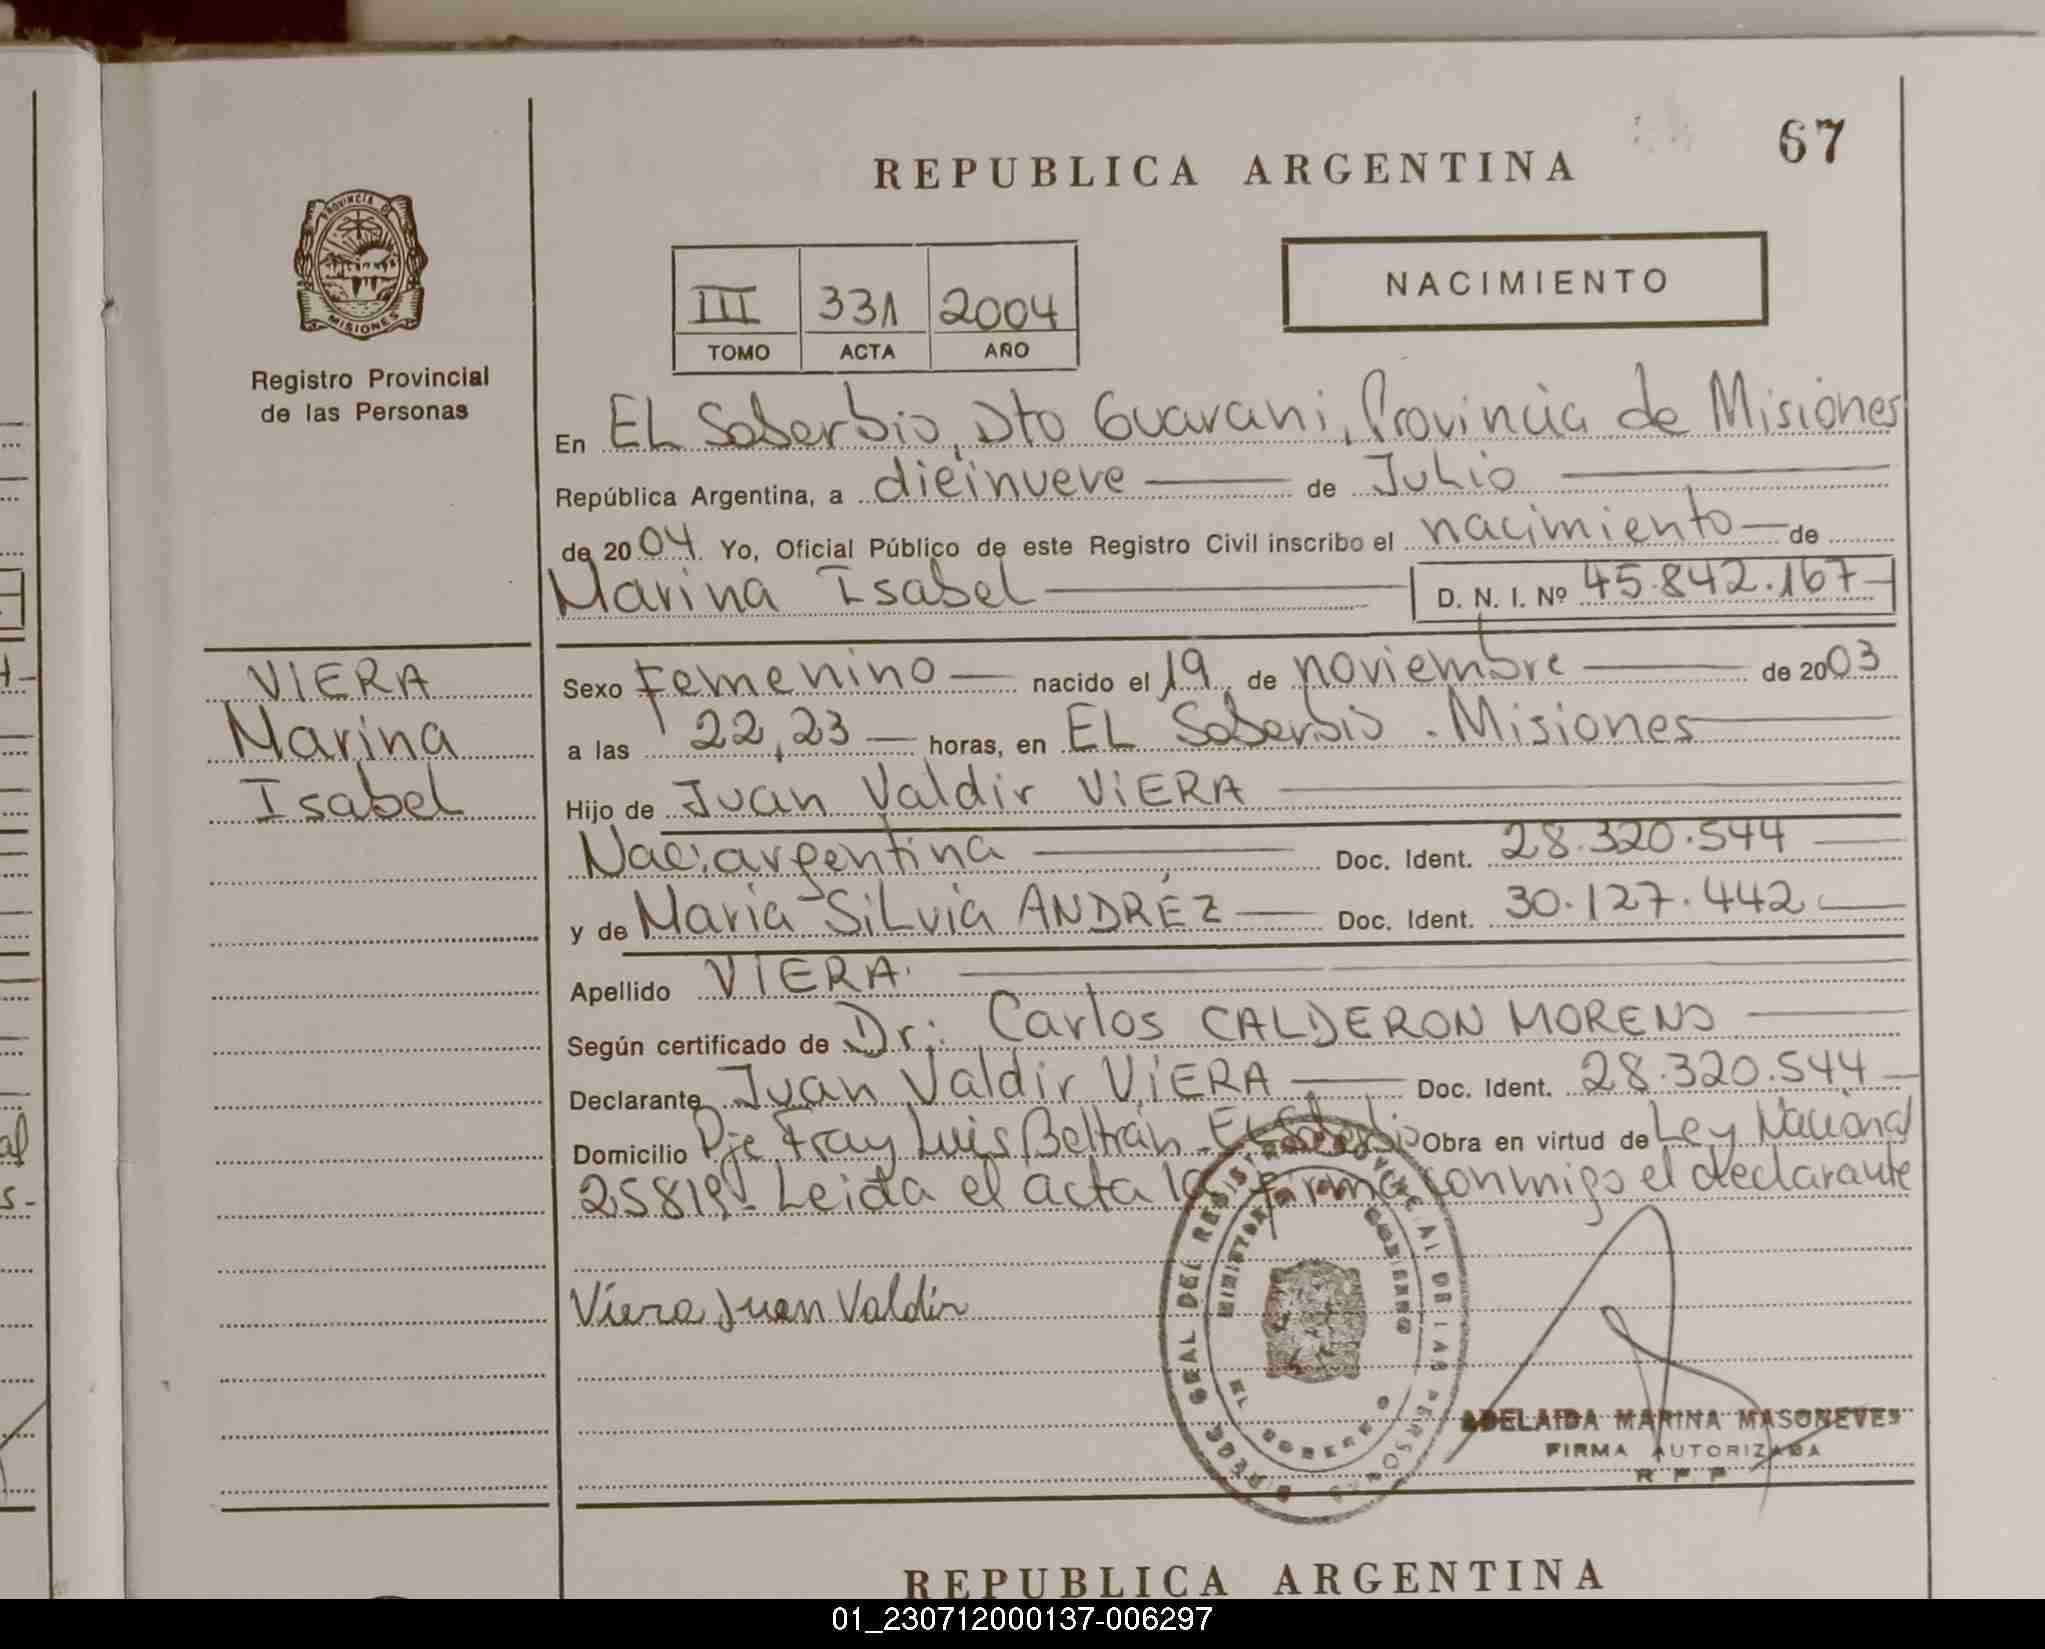 67
REPUBLICA ARGENTINA
PROVINCIA DE
MISIONES
Registro Provincial
de las Personas
III 331 2004
TOMO ACTA AÑO
NACIMIENTO
En EL Soberbio, Dto Guarani, Provincia de Misiones
República Argentina, a dieinueve de Julio
de 2004 Yo, Oficial Público de este Registro Civil inscribo el nacimiento de
Marina Isabel D. N. I. Nº 45.842.167
VIERA
Marina
Isabel
Sexo Femenino nacido el 19 de noviembre de 2003
a las 22,23 horas, en EL Soberbio . Misiones
Hijo de Juan Valdir ViERA
Nac: argentina Doc. Ident. 28.320.544
y de Maria Silvia ANDRÉZ Doc. Ident. 30.127.442
Apellido VIERA.
Según certificado de Dr: Carlos CALDERON MORENO
Declarante Juan Valdir ViERA Doc. Ident. 28.320.544
Domicilio Pje Fray Luis Beltrán - El Soberbio Obra en virtud de Ley Nacional
25819 - Leida el acta la firma conmigo el declarante
Viera Juan Valdir
ADELAIDA MARINA MASONEVES
FIRMA AUTORIZADA
R P P
REPUBLICA ARGENTINA
01_230712000137-006297